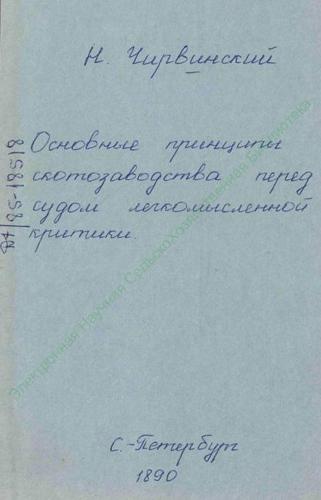 Н. Чирвинский
Основные принципы
скотозаводства перед
судом легкомысленной
критики.
С.-Петербург
1890
Электронная Научная СельскоХозяйственная Библиотека